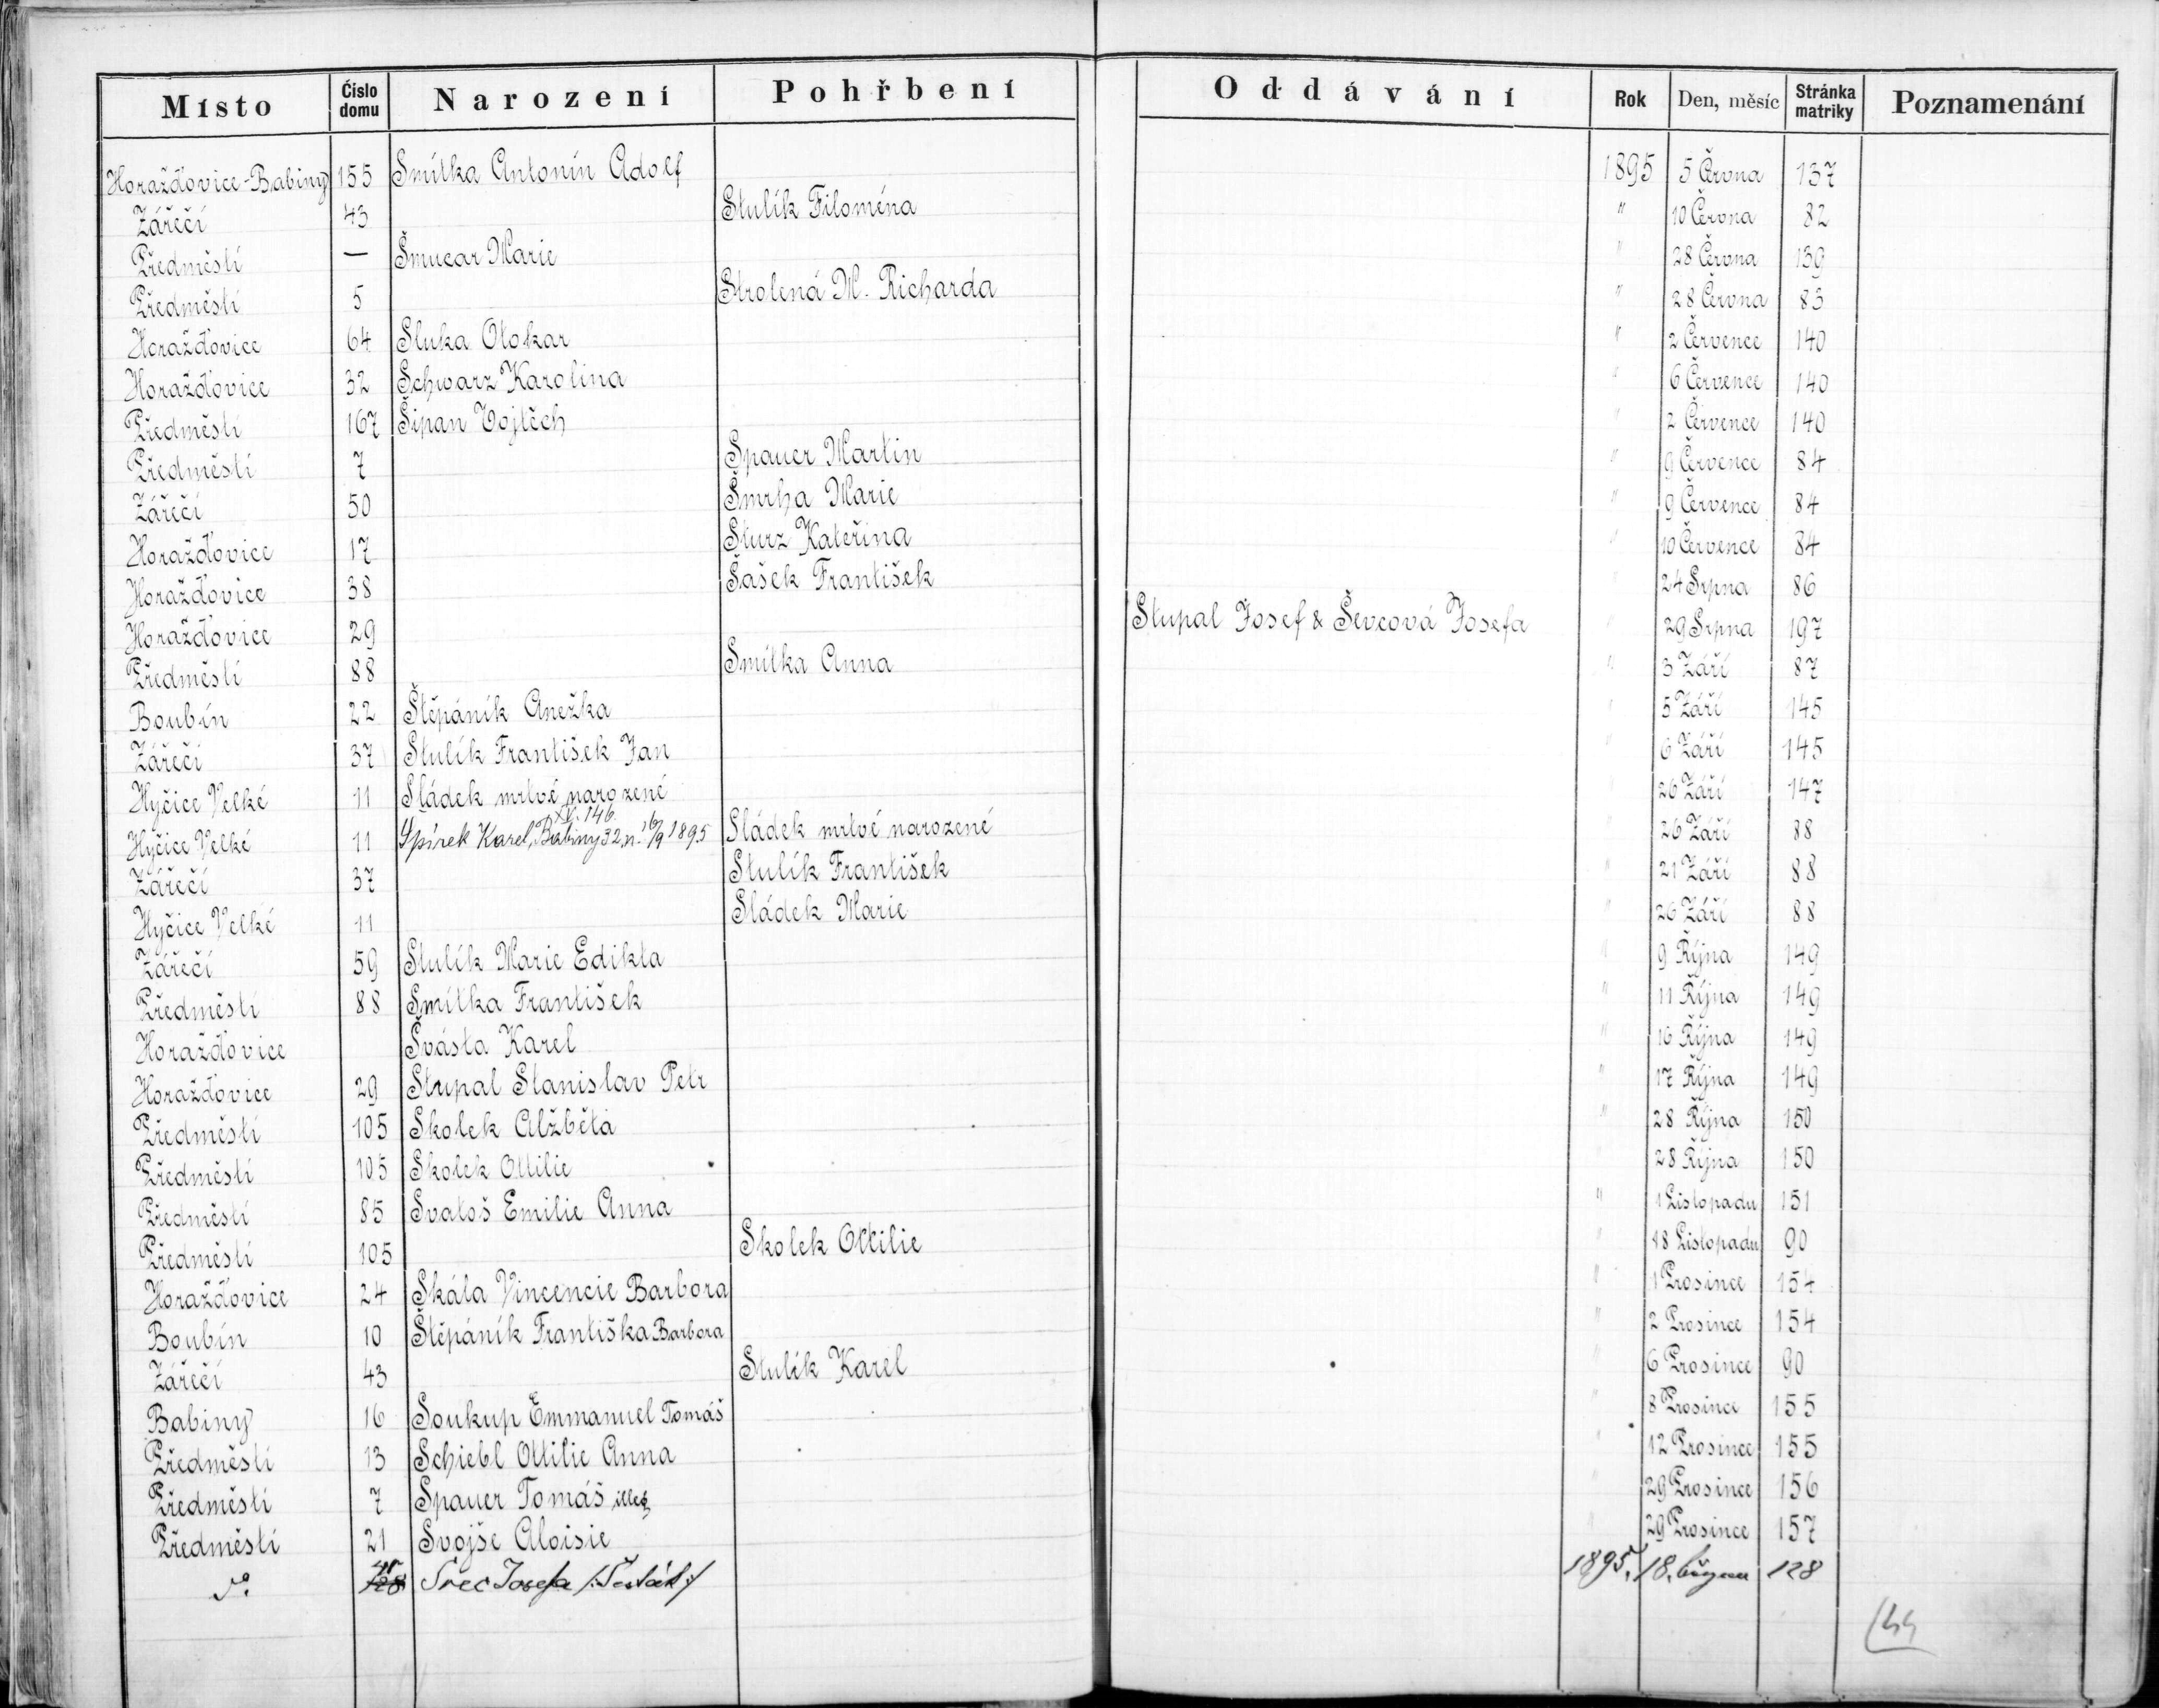 Místo Číslo domu Narození Pohřbení Oddávání Rok Den, měsíc Stránka matriky Poznamenání
Horažďovice-Babiny 155 Smítka Antonín Adolf 1895 5 Června 137
Zářečí 43 Stulík Filoména " 10 Června 82
Předměstí — Šmucar Marie " 28 Června 139
Předměstí 5 Strolená M. Richarda " 28 Června 83
Horažďovice 64 Sluka Otokar " 2 Července 140
Horažďovice 32 Schwarz Karolina " 6 Července 140
Předměstí 167 Šipan Vojtěch " 2 Července 140
Předměstí 7 Spauer Martin " 9 Července 84
Zářečí 50 Šmrha Marie " 9 Července 84
Horažďovice 17 Sturz Kateřina " 10 Července 84
Horažďovice 38 Šašek František " 24 Srpna 86
Horažďovice 29 Stupal Josef & Ševcová Josefa " 29 Srpna 197
Předměstí 88 Smítka Anna " 3 Září 87
Boubín 22 Štěpáník Anežka " 5 Září 145
Zářečí 37 Stulík František Jan " 6 Září 145
Hyčice Velké 11 Sládek mrtvé narozené " 26 Září 147
Hyčice Velké 11 Spírek Karel, Babiny 32, n. 16/9 1895 XV. 146. Sládek mrtvé narozené " 26 Září 88
Zářečí 37 Stulík František " 21 Září 88
Hyčice Velké 11 Sládek Marie " 26 Září 88
Zářečí 59 Stulík Marie Edikta " 9 Října 149
Předměstí 88 Smítka František " 11 Října 149
Horažďovice Švásta Karel " 16 Října 149
Horažďovice 29 Stupal Stanislav Petr " 17 Října 149
Předměstí 105 Skolek Alžběta " 28 Října 150
Předměstí 105 Skolek Ottilie " 28 Října 150
Předměstí 85 Svatoš Emilie Anna " 1 Listopadu 151
Předměstí 105 Skolek Ottilie " 18 Listopadu 90
Horažďovice 24 Skála Vincencie Barbora " 1 Prosince 154
Boubín 10 Štěpáník Františka Barbora " 2 Prosince 154
Zářečí 43 Stulík Karel " 6 Prosince 90
Babiny 16 Soukup Emmanuel Tomáš " 8 Prosince 155
Předměstí 13 Schiebl Ottilie Anna " 12 Prosince 155
Předměstí 7 Spauer Tomáš illeg " 29 Prosince 156
Předměstí 21 Svojše Aloisie " 29 Prosince 157
128 Švec Josefa 1895. 18. března 128